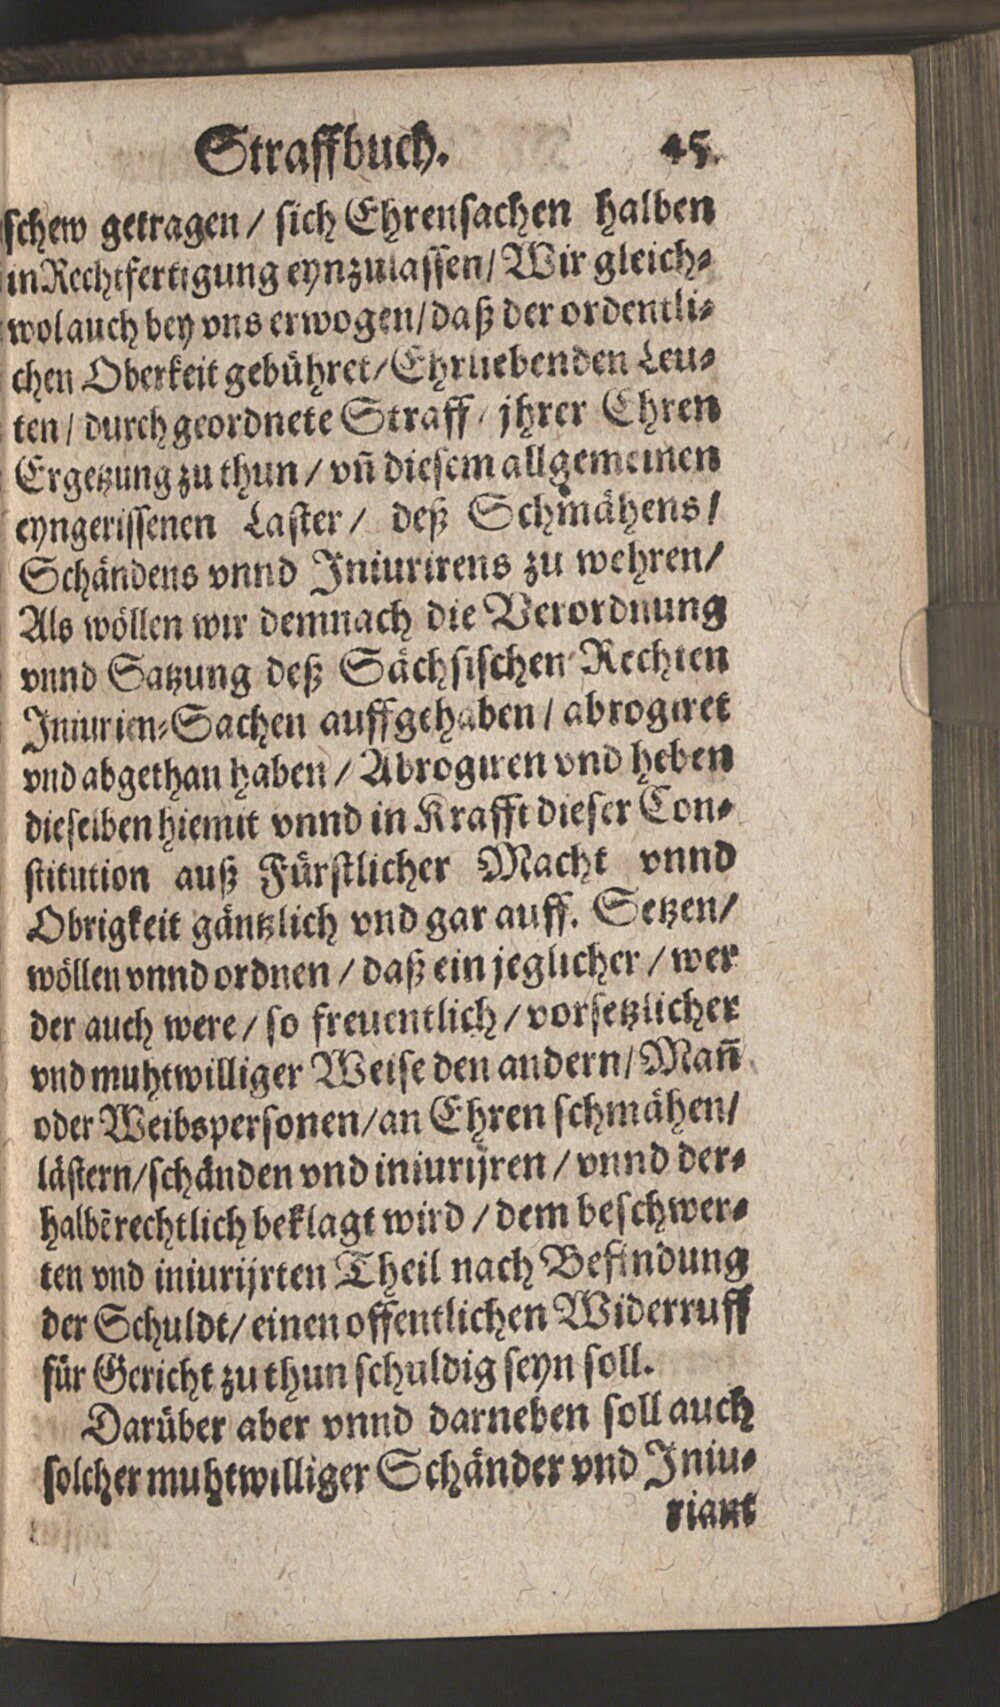 Straffbuch. 45.
schew getragen / sich Ehrensachen halben
in Rechtfertigung eynzulassen / Wir gleich-
wol auch bey vns erwogen / daß der ordentli-
chen Oberkeit gebühret / Ehrliebenden Leu-
ten / durch geordnete Straff / jhrer Ehren
Ergetzung zu thun / vñ diesem allgemeinen
eyngerissenen Laster / deß Schmähens /
Schändens vnnd Iniurirens zu wehren /
Als wöllen wir demnach die Verordnung
vnnd Satzung deß Sächsischen Rechten
Iniurien-Sachen auffgehaben / abrogiret
vnd abgethan haben / Abrogiren vnd heben
dieselben hiemit vnnd in Krafft dieser Con-
stitution auß Fürstlicher Macht vnnd
Obrigkeit gäntzlich vnd gar auff. Setzen /
wöllen vnnd ordnen / daß ein jeglicher / wer
der auch were / so freuentlich / vorsetzlicher
vnd muhtwilliger Weise den andern / Mañ
oder Weibspersonen / an Ehren schmähen /
lästern / schänden vnd iniurijren / vnnd der-
halbē rechtlich beklagt wird / dem beschwer-
ten vnd iniurijrten Theil nach Befindung
der Schuldt / einen offentlichen Widerruff
für Gericht zu thun schuldig seyn soll.
Darüber aber vnnd darneben soll auch
solcher muhtwilliger Schänder vnd Iniu-
riant